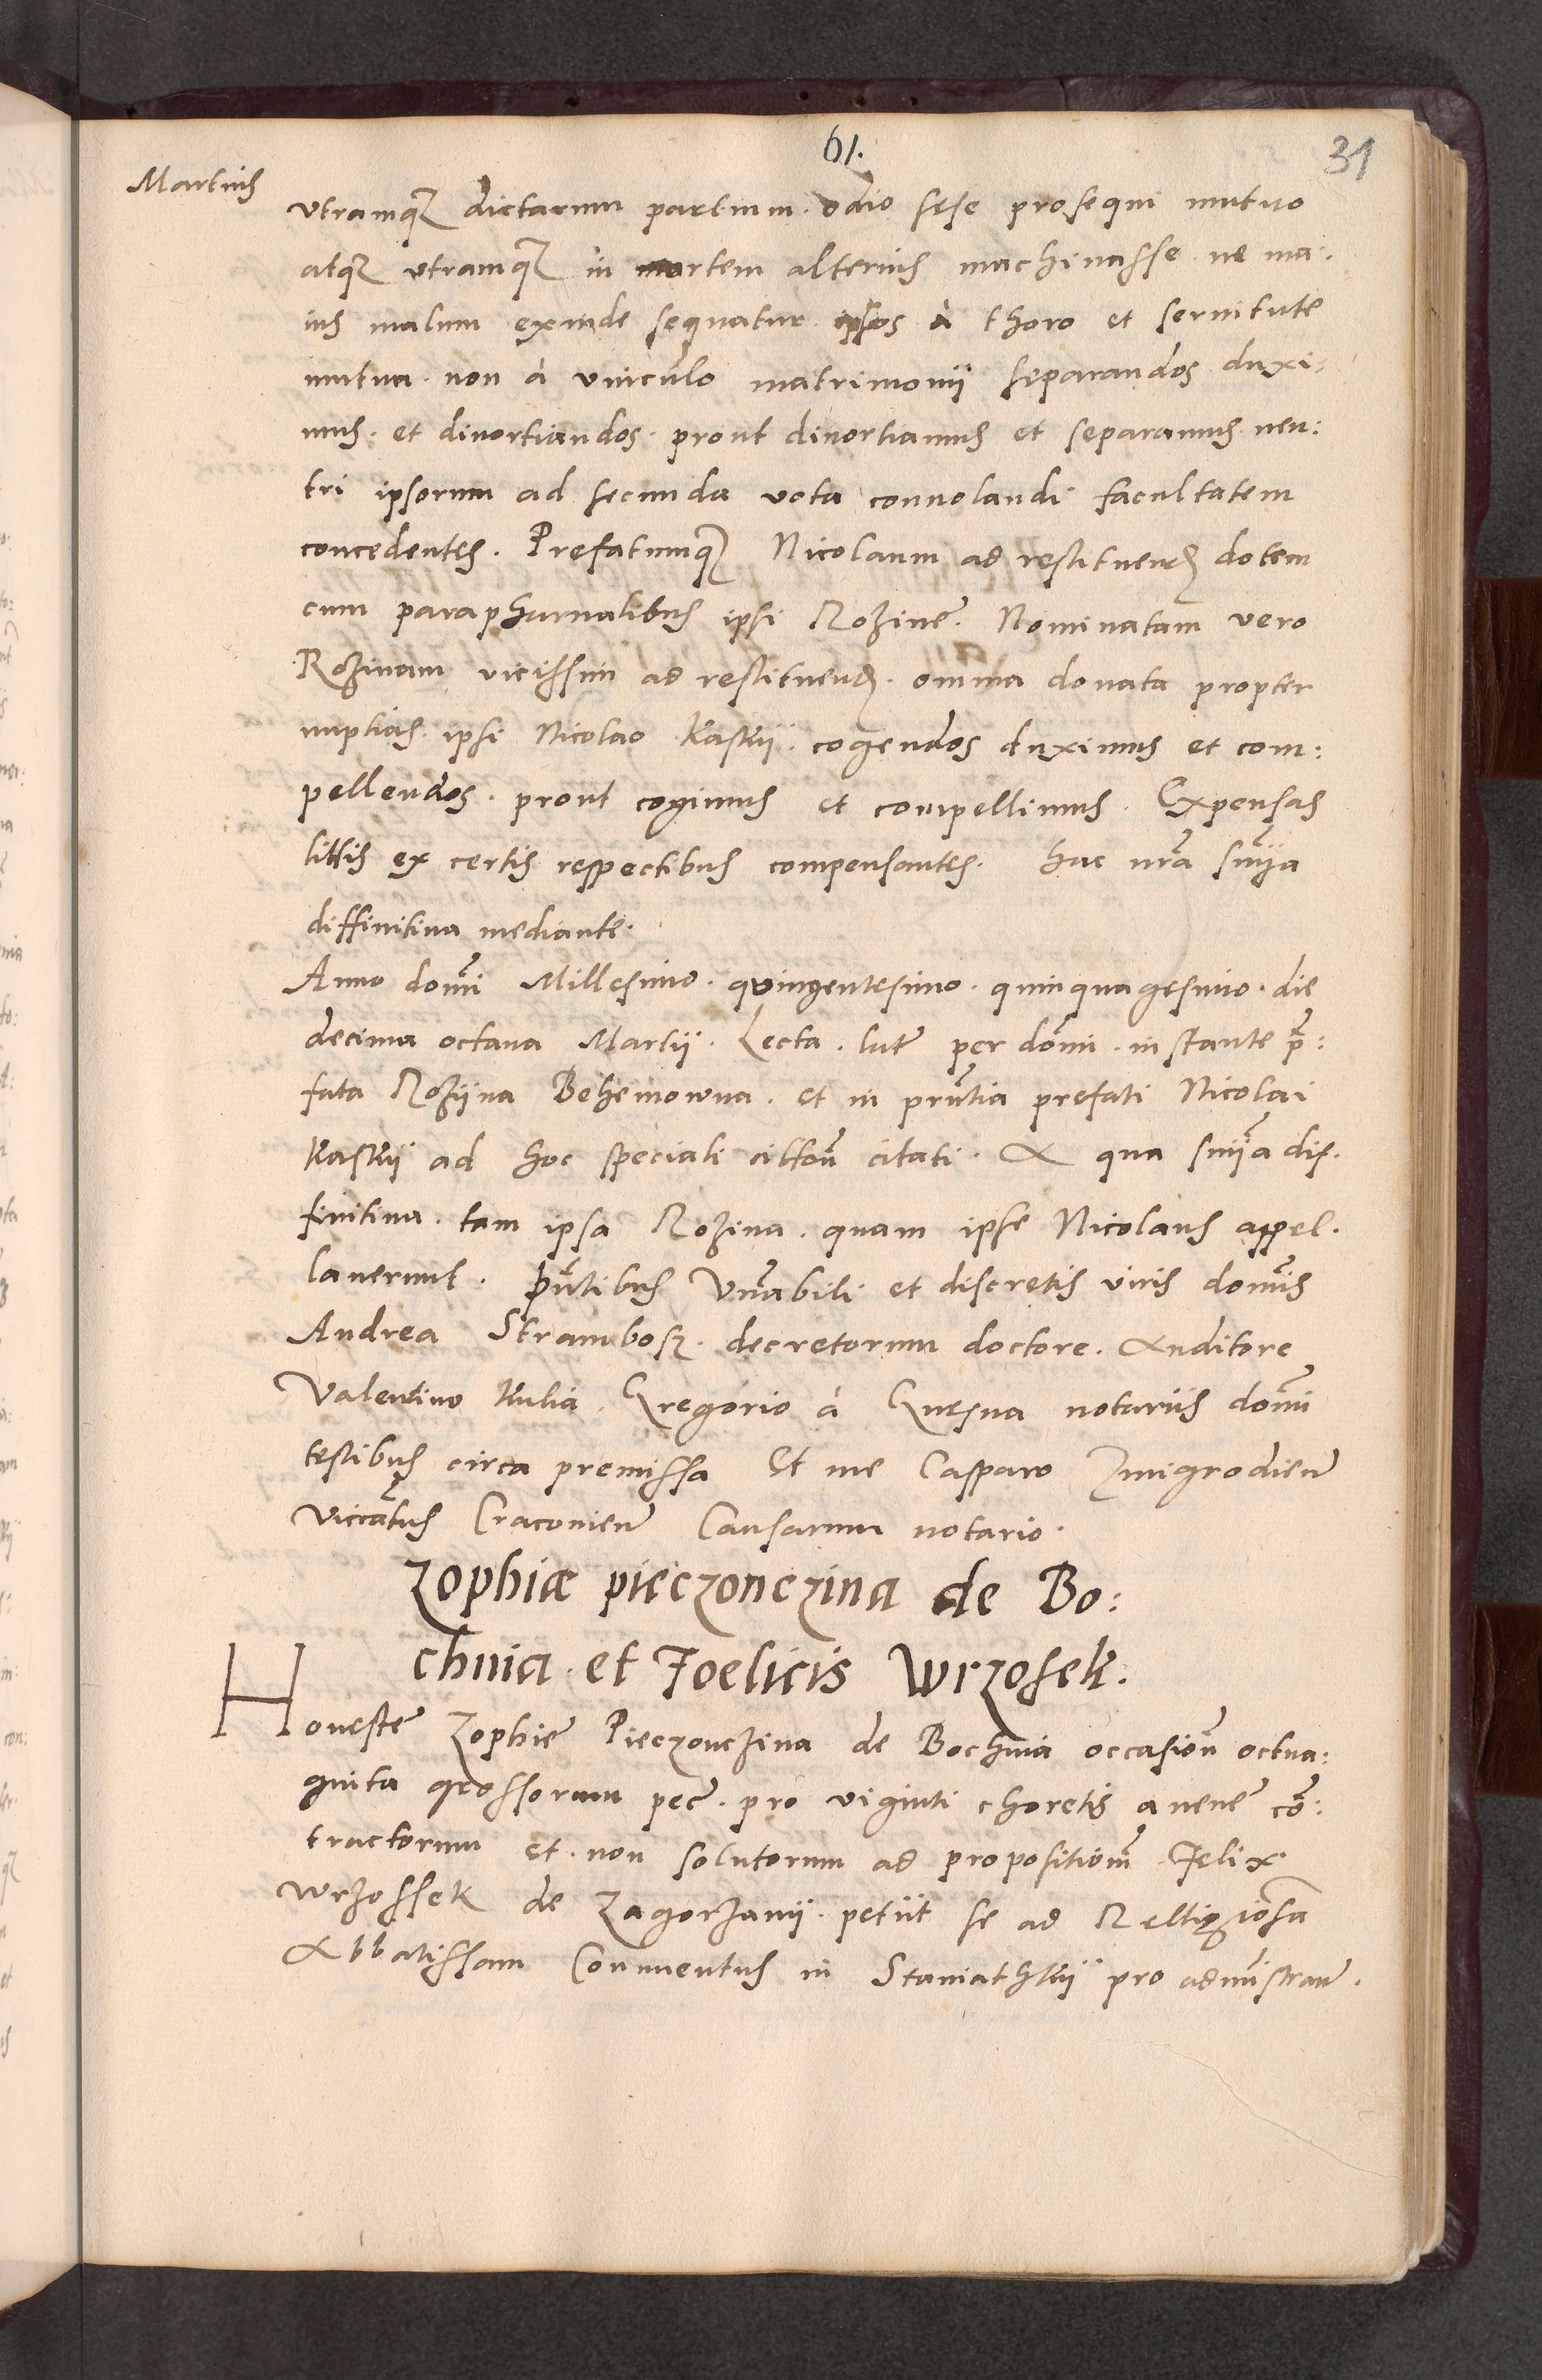 61.
31
Martius
vtramq₃ dictarum partium. odio sese prosequi mutuo
atq₃ vtramq₃ in mortem alterius machinasse. ne ma:
ius malum exinde sequatur. ipsos à thoro et seruitute
mutua. non à vinculo matrimonij separandos duxi:
mus. et diuortiandos. prout diuortiamus et separamus. neu:
tri ipsorum ad secunda vota conuolandi facultatem
concedentes. Prefatumq₃ Nicolaum ad restituend dotem
cum paraphurnalibus ipsi Rozine. Nominatam vero
Rozinam vicissim ad restituend. omnia donata propter
nuptias. ipsi Nicolao Kaskij. cogendos duximus et com:
pellendos. prout cogimus et compellimus. Expensas
littis ex certis respectibus compensantes. hac nrã snĩja
diffinitiua mediante.
Anno domĩ Millesimo. quingentesimo. quinquagesimo. die
decima octaua Martij. Lecta. lat per domi. instante p̃:
fata Rozijna Behemowna. et in prñtia prefati Nicolai
Kaskij ad hoc speciali cittoñ citati. A qua snĩja dif.
finitiua. tam ipsa Rozina. quam ipse Nicolaus appel.
lauerunt. pñtibus Vnãbili et discretis viris domĩs
Andrea Strambosz. decretorum doctore. Auditore
Valentino Kulia. Gregorio à Gnesna notariis domĩ
testibus circa premissa Et me Casparo Zmigrodien
viccãtus Cracouien Causarum notario.
Zophiæ pieczonczina de Bo:
chnia. et Foelicis Wrzosek.
Honeste Zophie Pieczonczina de Bochnia occasioñ octua:
ginta grossorum pec. pro viginti choretis auene cõ:
tractorum et non solutorum ad propositioñ Felix
Wrzossek de Zagorzanij. petiit se ad Relligiosã
Abbatissam Conuentus in Staniathkij pro admĩstran.